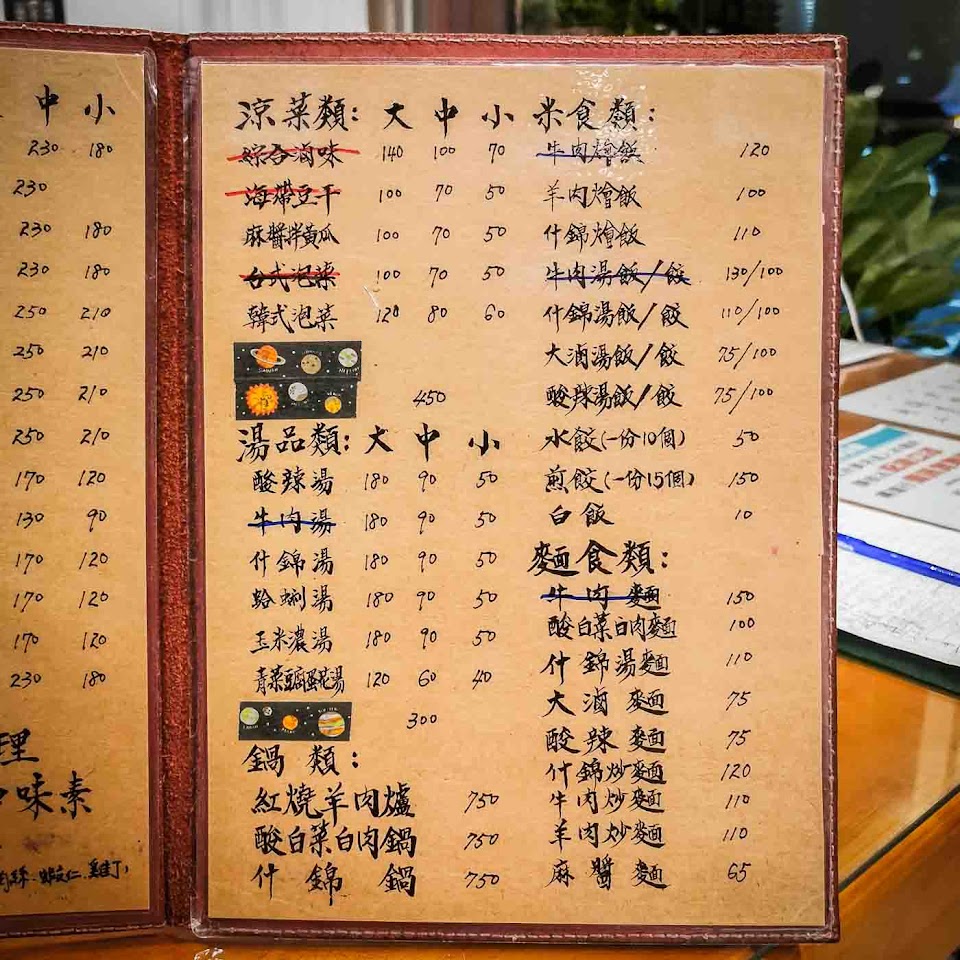 中 小
230 180
230
230 180
230 180
250 210
250 210
250 210
250 210
170 120
130 90
170 120
170 120
170 120
230 180
理
味素
涼菜類：大 中 小
綜合滷味 140 100 70
海帶豆干 100 70 50
麻醬拌黃瓜 100 70 50
台式泡菜 100 70 50
韓式泡菜 120 80 60
450
湯品類：大 中 小
酸辣湯 180 90 50
牛肉湯 180 90 50
什錦湯 180 90 50
蛤蜊湯 180 90 50
玉米濃湯 180 90 50
青菜豆腐蛋花湯 120 60 40
300
鍋類：
紅燒羊肉爐 750
酸白菜白肉鍋 750
什錦鍋 750
米食類：
牛肉燴飯 120
羊肉燴飯 100
什錦燴飯 110
牛肉湯飯/餃 130/100
什錦湯飯/餃 110/100
大滷湯飯/餃 75/100
酸辣湯飯/餃 75/100
水餃(一份10個) 50
煎餃(一份15個) 150
白飯 10
麵食類：
牛肉麵 150
酸白菜白肉麵 100
什錦湯麵 110
大滷麵 75
酸辣麵 75
什錦炒麵 120
牛肉炒麵 110
羊肉炒麵 110
麻醬麵 65